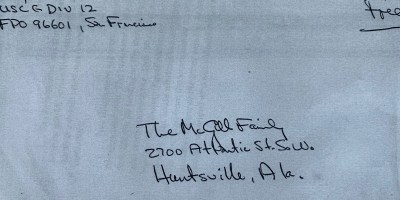 USCG DIV 12
FPO 96601, San Francisco
free
The McGill Family
2700 Atlantic St. S.W.
Huntsville, Ala.